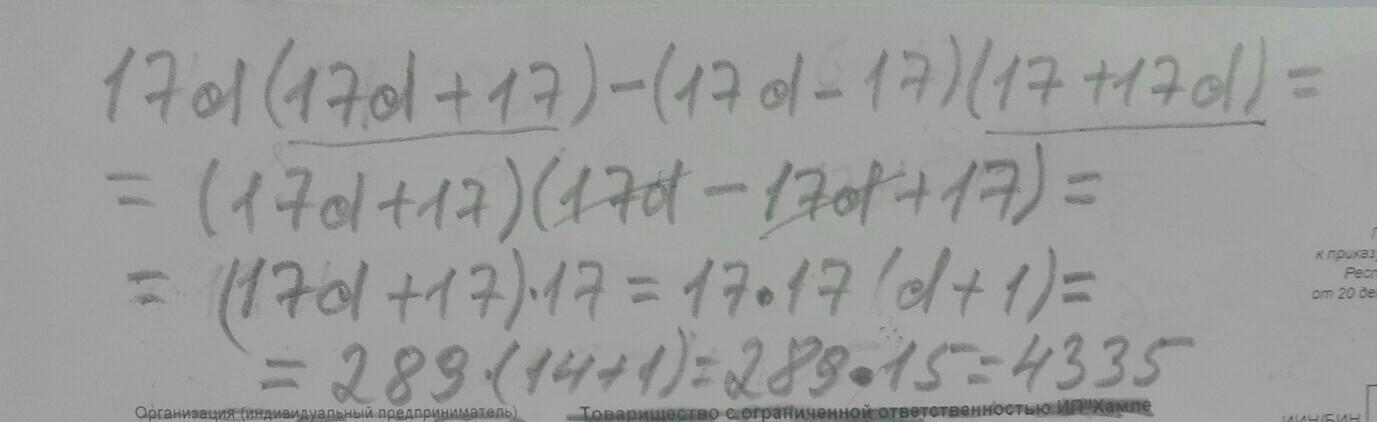 17d(17d+17)-(17d-17)(17+17d)=
=(17d+17)(17d-17d+17)=
=(17d+17)·17=17·17(d+1)=
к приказ
Респ
от 20 де
=289·(14+1)=289·15=4335
Организация (индивидуальный предприниматель) Товарищество с ограниченной ответственностью ИП "Хамле
ИИН/БИН